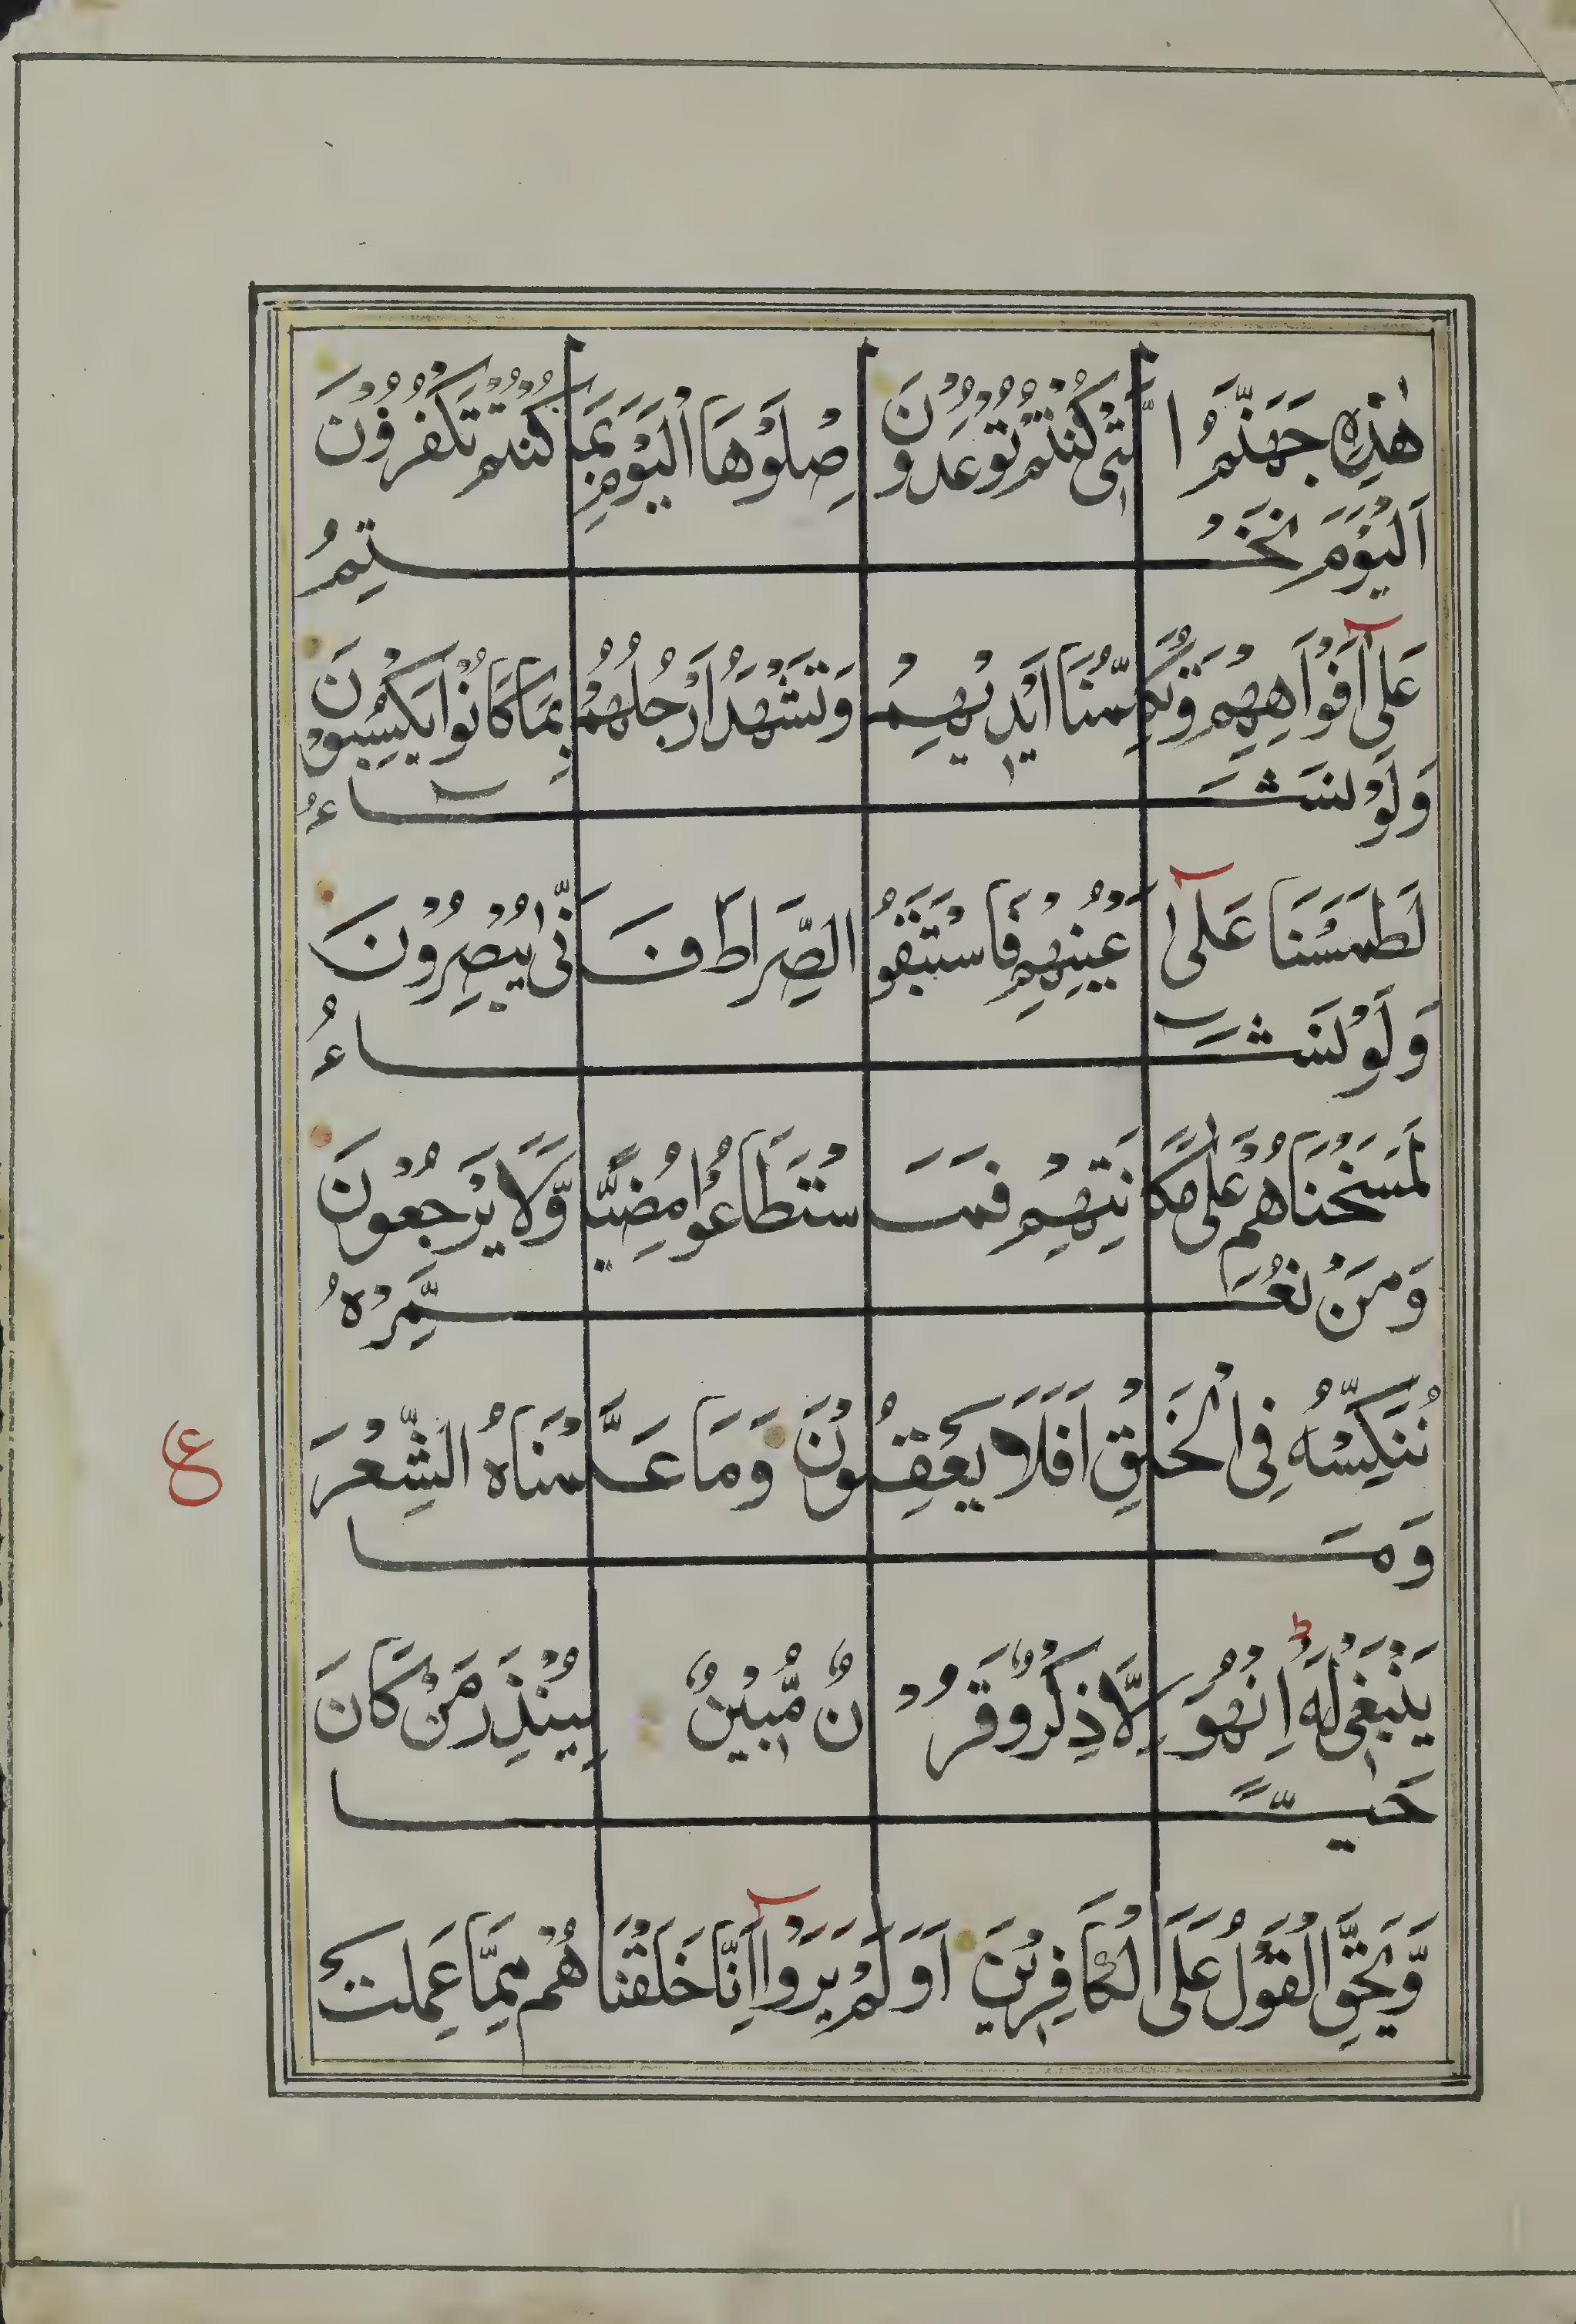 هٰذِهٖ جَهَنَّمُ الَّتِیْ كُنْتُمْ تُوْعَدُوْنَ اِصْلَوْهَا الْیَوْمَ بِمَا كُنْتُمْ تَكْفُرُوْنَ
اَلْیَوْمَ نَخْتِمُ
عَلٰۤی اَفْوَاهِهِمْ وَتُكَلِّمُنَا اَیْدِیْهِمْ وَتَشْهَدُ اَرْجُلُهُمْ بِمَا كَانُوْا یَكْسِبُوْنَ
وَلَوْ نَشَآءُ
لَطَمَسْنَا عَلٰۤی اَعْیُنِهِمْ فَاسْتَبَقُوا الصِّرَاطَ فَاَنّٰی یُبْصِرُوْنَ
وَلَوْ نَشَآءُ
لَمَسَخْنَاهُمْ عَلٰی مَكَانَتِهِمْ فَمَا اسْتَطَاعُوْا مُضِیًّا وَّلَا یَرْجِعُوْنَ
وَمَنْ نُعَمِّرْهُ
نُنَكِّسْهُ فِی الْخَلْقِ اَفَلَا یَعْقِلُوْنَ وَمَا عَلَّمْنَاهُ الشِّعْرَ
ع
وَمَا
یَنْۢبَغِیْ لَهٗ ط اِنْ هُوَ اِلَّا ذِكْرٌ وَّقُرْاٰنٌ مُّبِیْنٌ لِیُنْذِرَ مَنْ كَانَ
حَیًّا
وَّیَحِقَّ الْقَوْلُ عَلَی الْكَافِرِیْنَ اَوَلَمْ یَرَوْا اَنَّا خَلَقْنَا لَهُمْ مِمَّا عَمِلَتْ